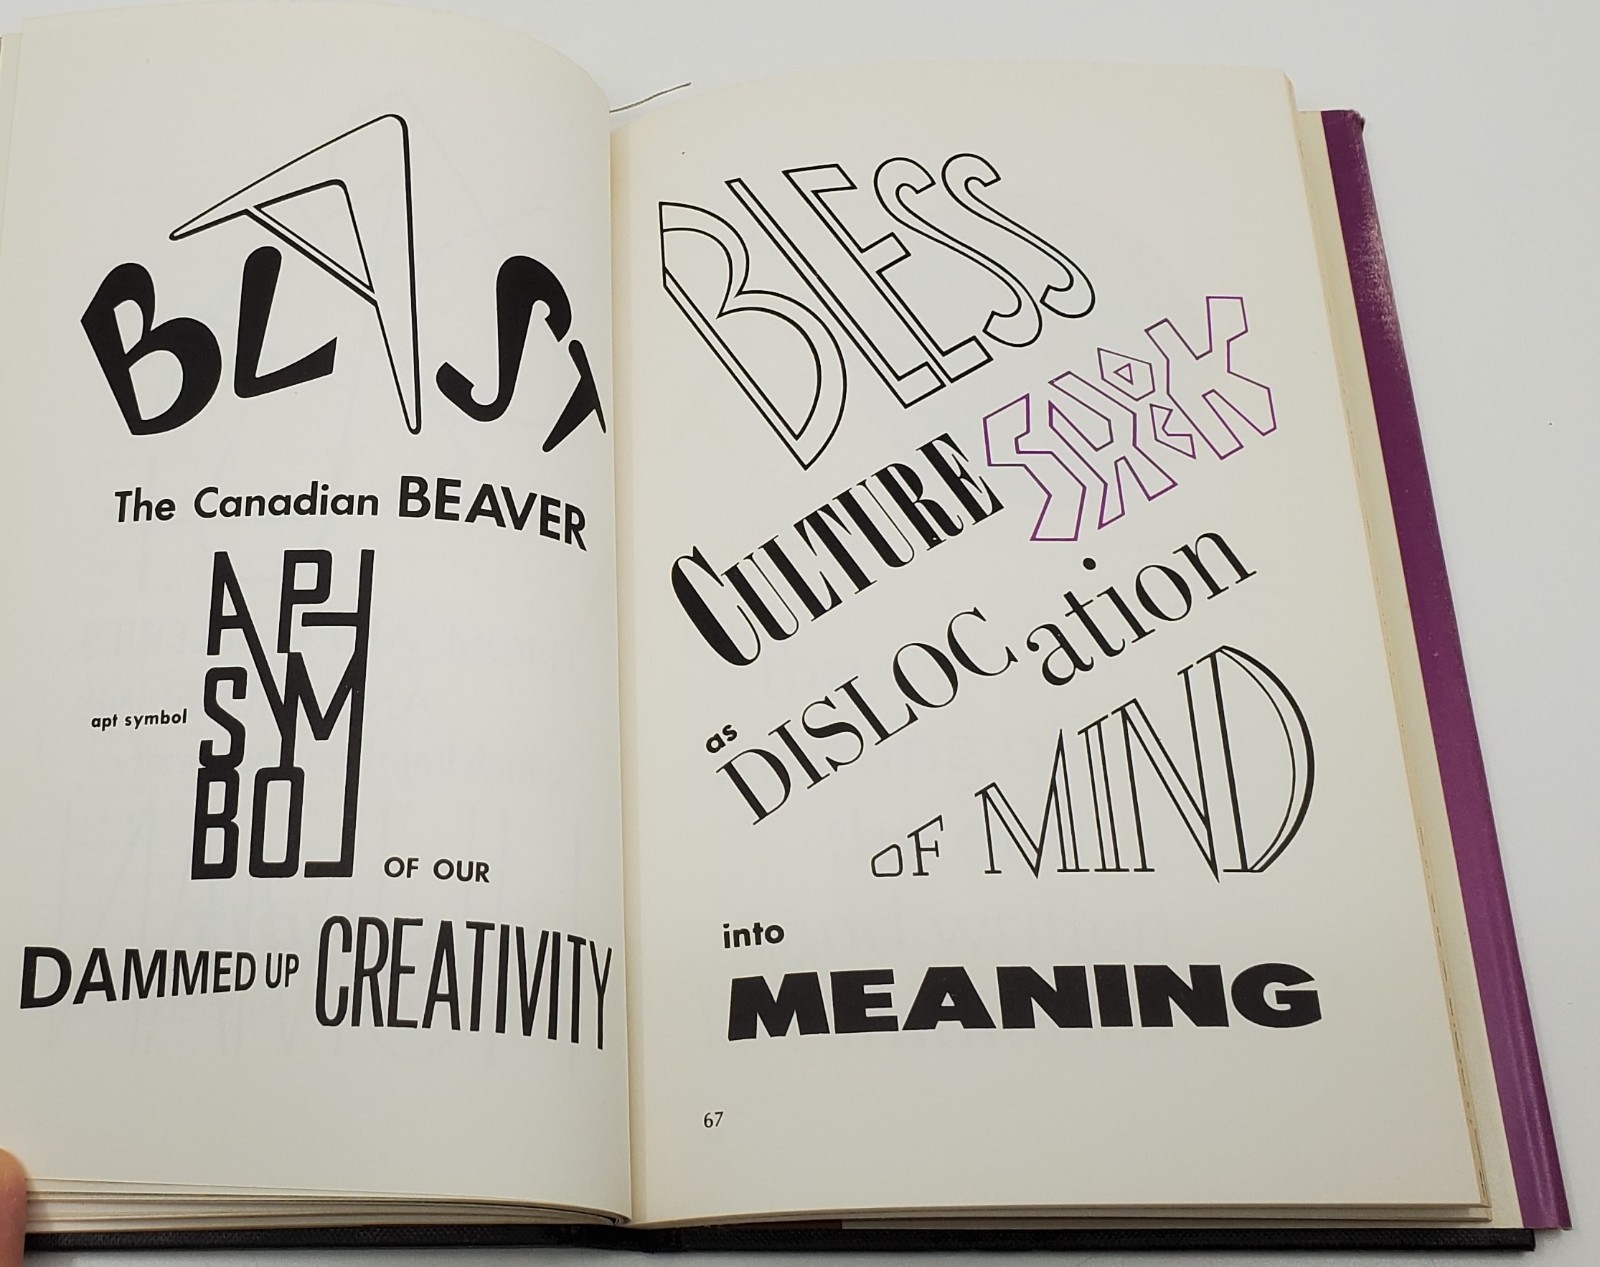 BLAST
The Canadian BEAVER
APT
SYM
BOL
apt symbol
OF OUR
DAMMED UP CREATIVITY
BLESS
CULTURE SHOCK
as
DISLOCation
OF MIND
into
MEANING
67